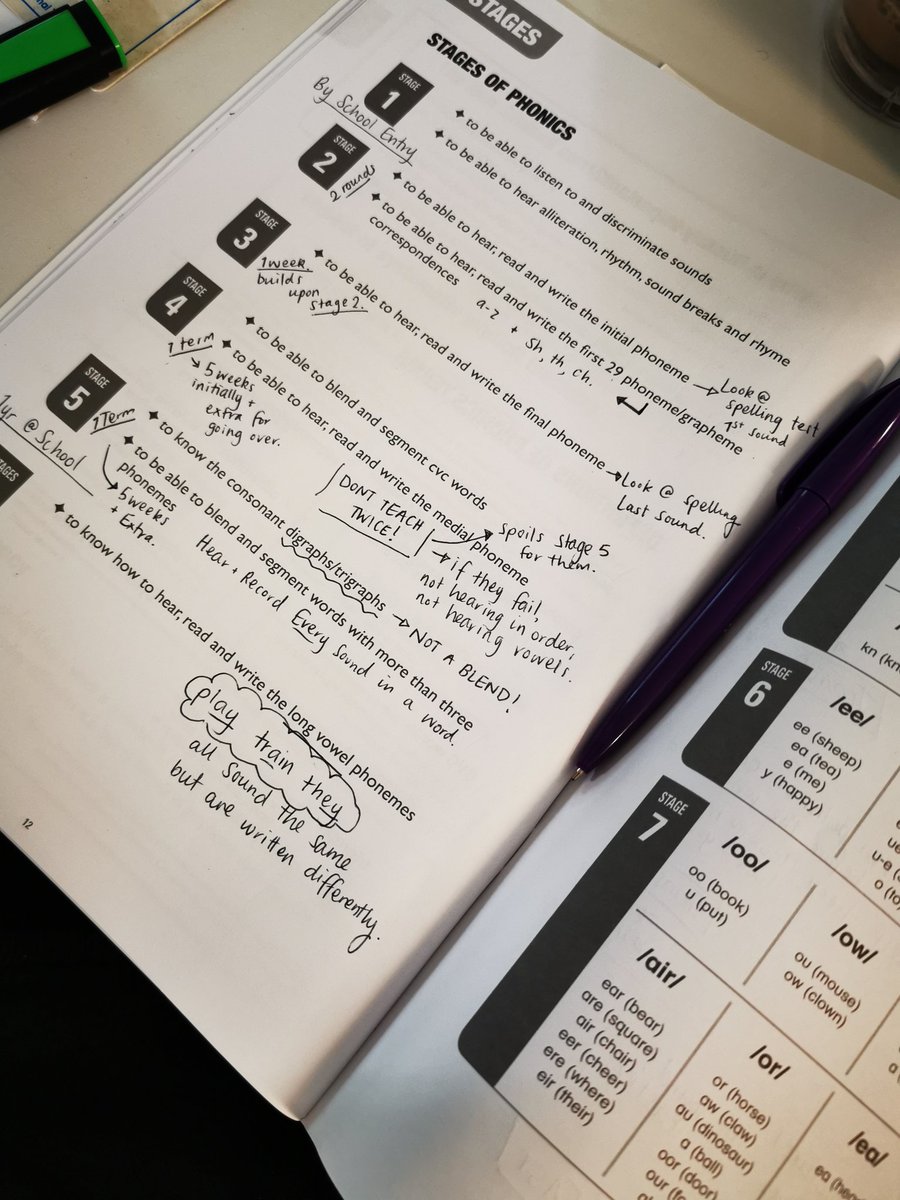 STAGES
STAGES OF PHONICS
STAGE
1
By School Entry
✦ to be able to listen to and discriminate sounds
✦ to be able to hear alliteration, rhythm, sound breaks and rhyme
STAGE
2
2 rounds
✦ to be able to hear, read and write the initial phoneme → Look @
spelling test
1st sound
✦ to be able to hear, read and write the first 29 phoneme/grapheme
correspondences
a-z +
Sh, th, ch.
STAGE
3
1 week
builds
upon
stage 2.
✦ to be able to hear, read and write the final phoneme → Look @ spelling
Last sound.
STAGE
4
1 term
↘ 5 weeks
initially +
extra for
going over.
✦ to be able to blend and segment cvc words
✦ to be able to hear, read and write the medial phoneme
DONT TEACH
TWICE!
spoils stage 5
for them.
→ if they fail,
not hearing in order,
not hearing vowels.
STAGE
5
1 Term
5 weeks
+ Extra.
✦ to know the consonant digraphs/trigraphs → NOT A BLEND!
✦ to be able to blend and segment words with more than three
phonemes
Hear + Record Every Sound in a word.
1yr @ School
✦ to know how to hear, read and write the long vowel phonemes
play train they
all sound the same
but are written differently.
12
kn
STAGE
6
/ee/
ee (sheep)
ea (tea)
e (me)
y (happy)
u-e
STAGE
7
/oo/
oo (book)
u (put)
/ow/
ou (mouse)
ow (clown)
/air/
ear (bear)
are (square)
air (chair)
eer (cheer)
ere (where)
eir (their)
/or/
or (horse)
aw (claw)
au (dinosaur)
a (ball)
oor (door)
our
/ea/
ea